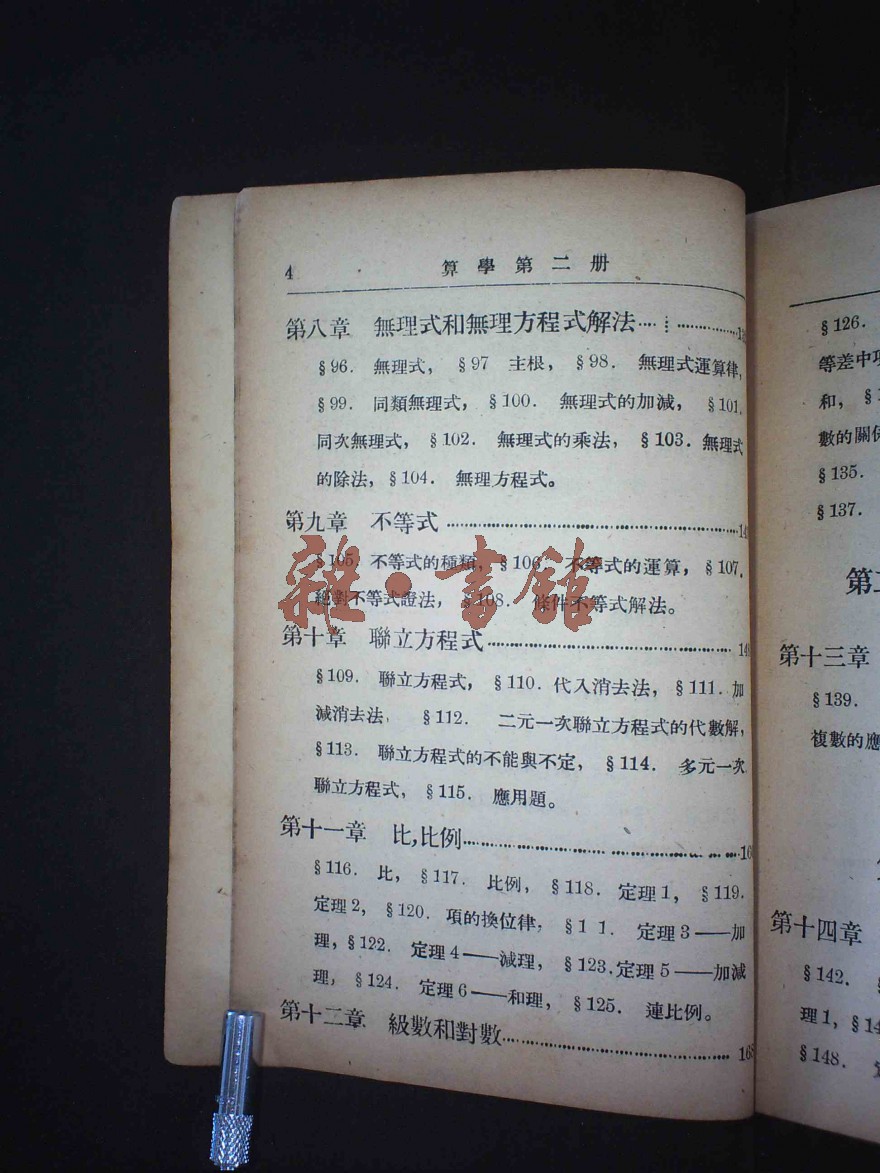 4 算學第二册
第八章 無理式和無理方程式解法
§96. 無理式, §97 主根, §98. 無理式運算律,
§99. 同類無理式, §100. 無理式的加減, §101.
同次無理式, §102. 無理式的乘法, §103. 無理式
的除法, §104. 無理方程式。
第九章 不等式
§105. 不等式的種類, §106. 不等式的運算, §107.
絕對不等式證法, §108. 條件不等式解法。
第十章 聯立方程式
§109. 聯立方程式, §110. 代入消去法, §111. 加
減消去法, §112. 二元一次聯立方程式的代數解,
§113. 聯立方程式的不能與不定, §114. 多元一次
聯立方程式, §115. 應用題。
第十一章 比,比例
§116. 比, §117. 比例, §118. 定理1, §119.
定理2, §120. 項的換位律, §1 1. 定理3——加
理, §122. 定理4——減理, §123. 定理5——加減
理, §124. 定理6——和理, §125. 連比例。
第十二章 級數和對數 168
雜·書館
§126.
等差中項
和,
數的關係
§135.
§137.
第十三章
§139.
複數的應
第十四章
§142.
理1, §14
§148.